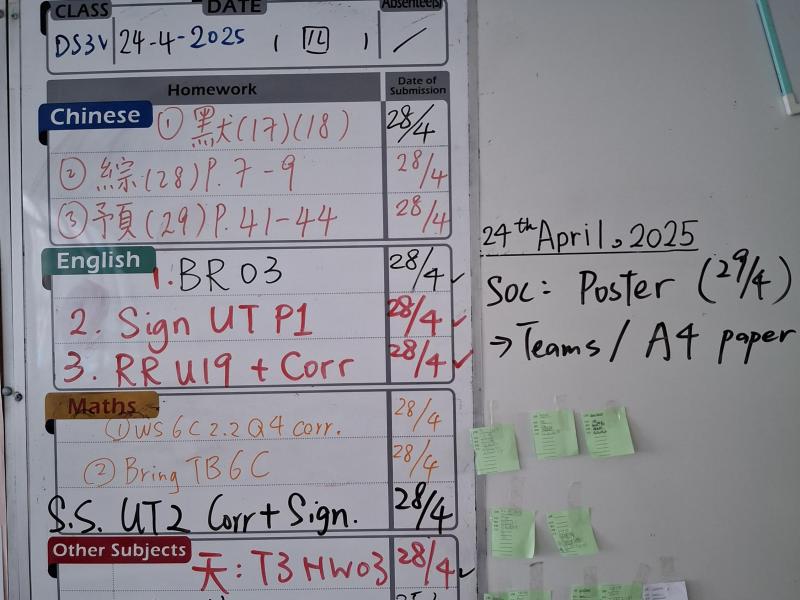 CLASS DATE Absentee(s)
DS3V 24-4-2025 ( 四 ) /
Homework Date of Submission
Chinese ① 默(17)(18) 28/4
② 綜(28)P.7-9 28/4
③ 預(29)P.41-44 28/4
English 1. BR 03 28/4 ✓
2. Sign UT P1 28/4 ✓
3. RR U19 + Corr 28/4 ✓
Maths ① WS 6C 2.2 Q4 corr. 28/4
② Bring TB 6C 28/4
S.S. UT2 Corr + Sign. 28/4
Other Subjects 天: T3 HW03 28/4 ✓
24th April, 2025
Soc: Poster (29/4)
→ Teams / A4 paper